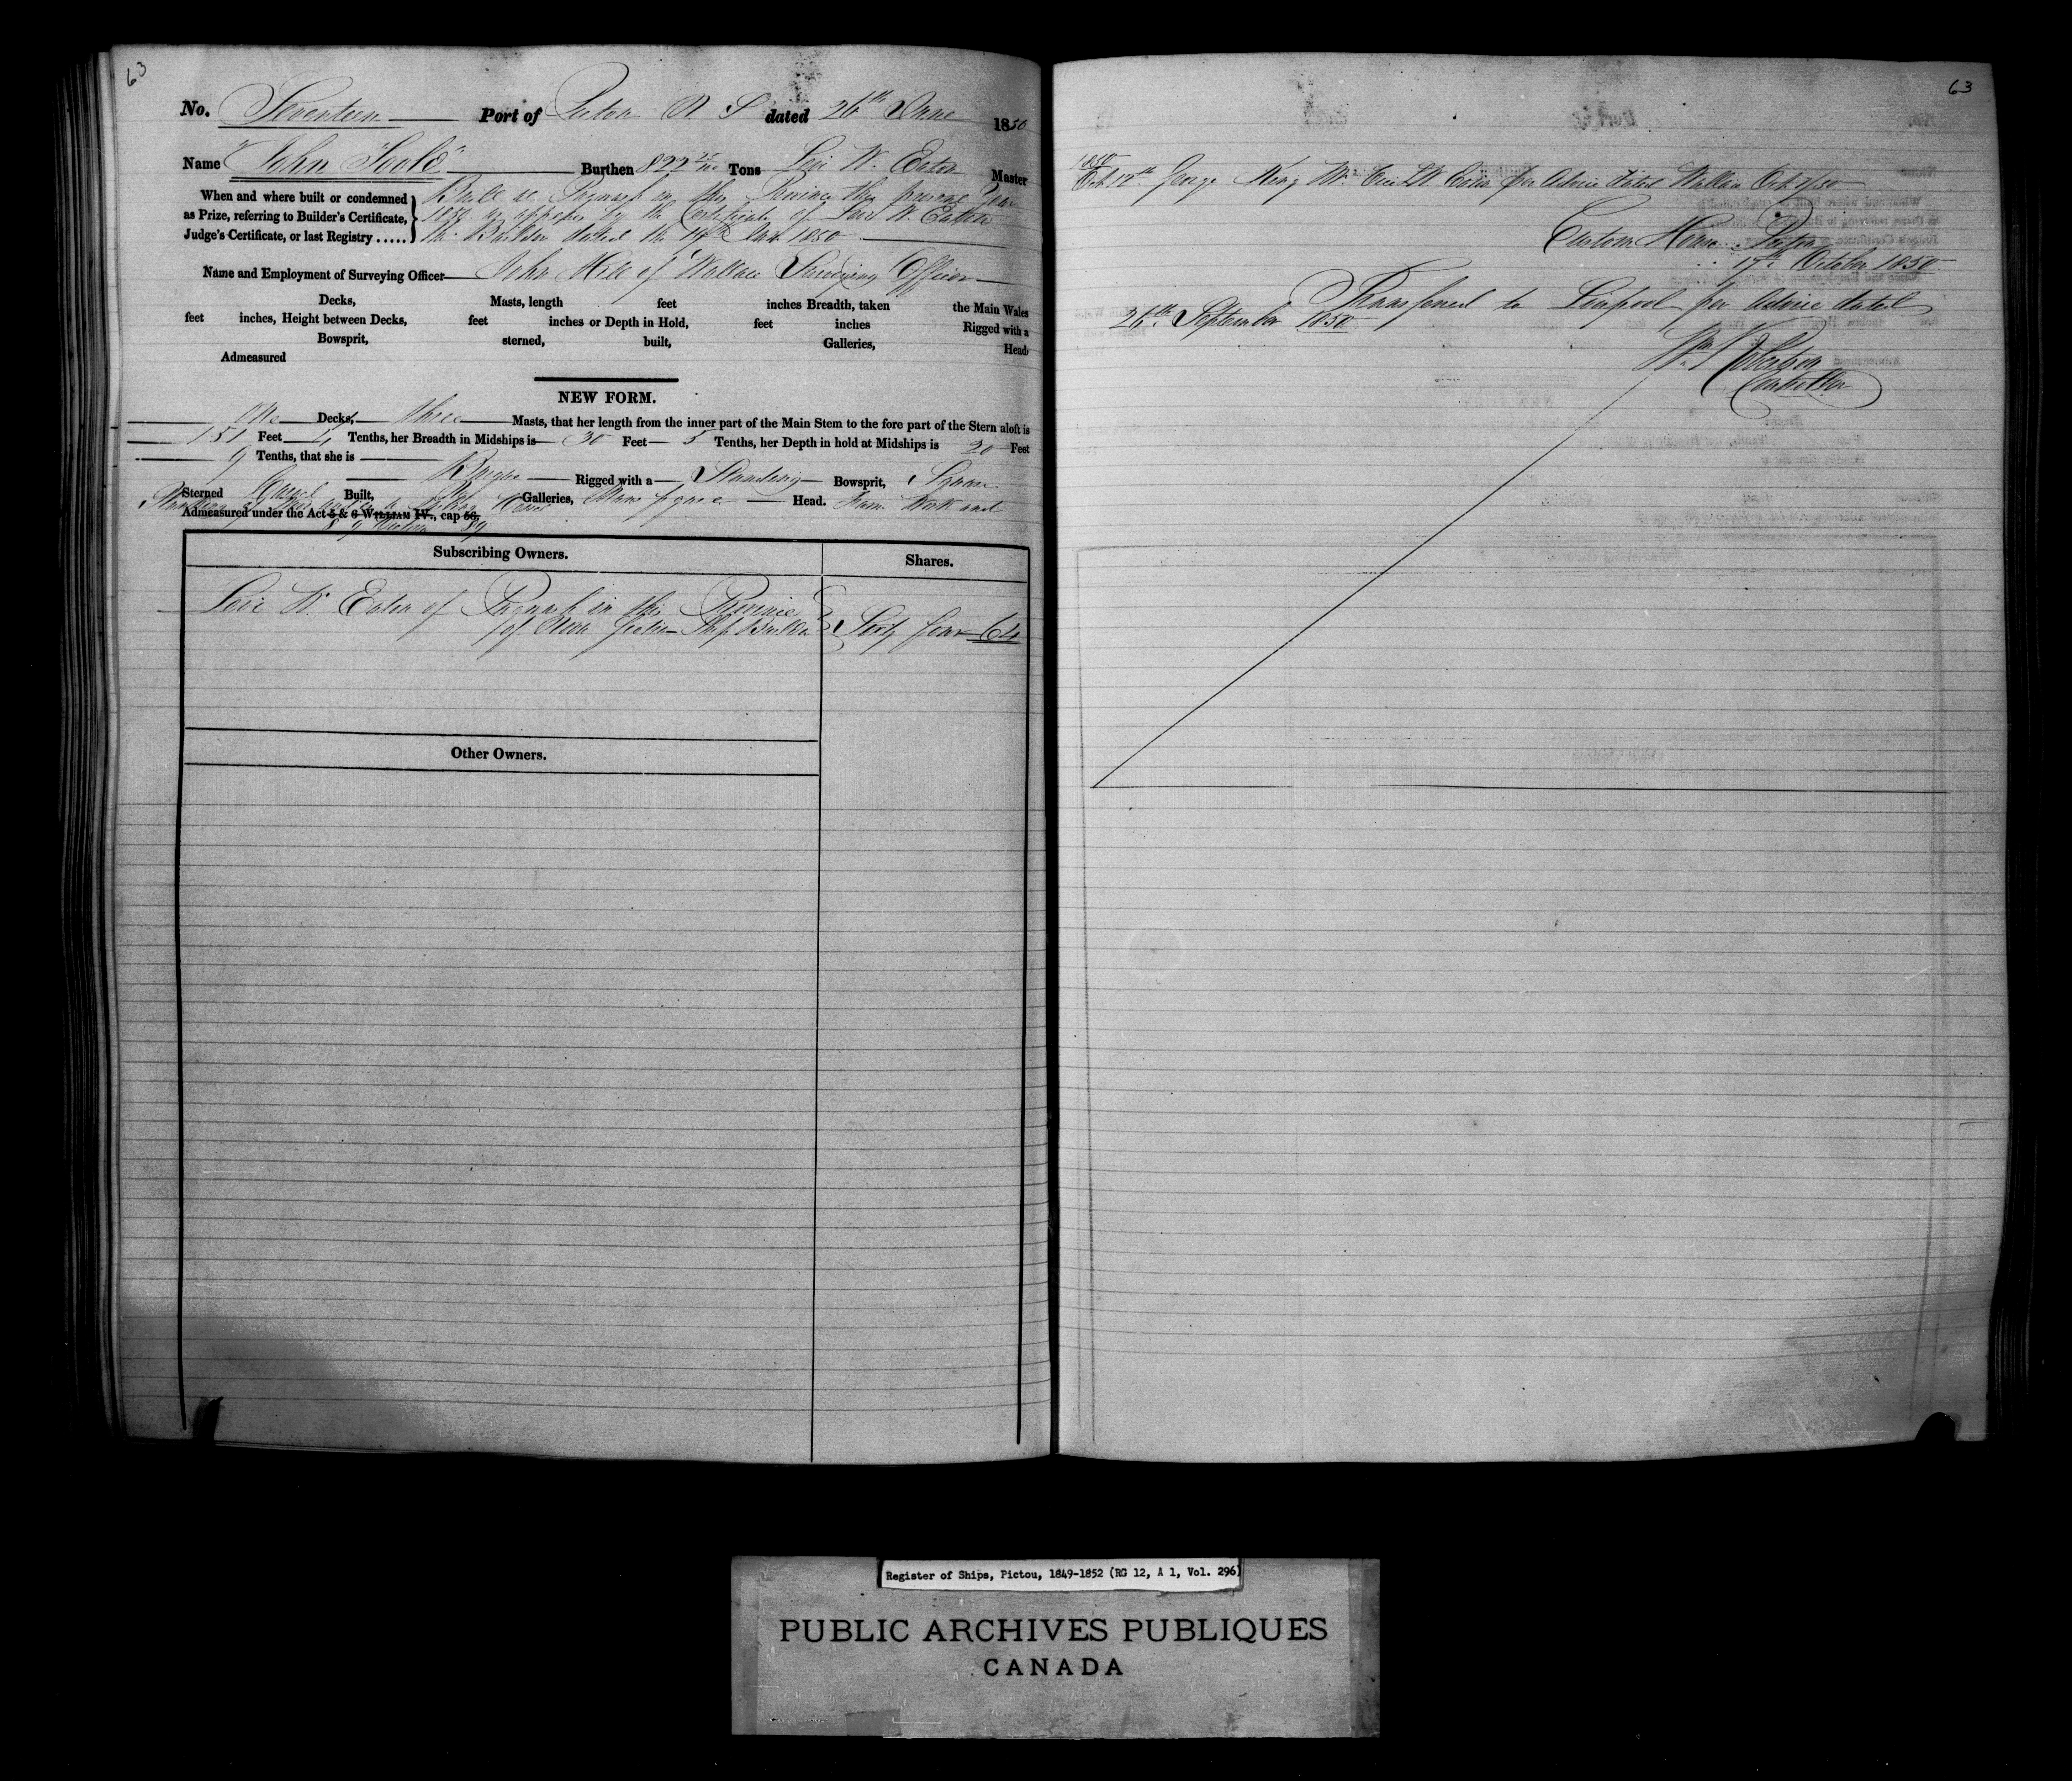 63
No. Seventeen Port of Pictou N. S dated 26th June 1850
Name "John Toole" Burthen 827 Tons Levi W. Eaton Master
When and where built or condemned
as Prize, referring to Builder's Certificate,
Judge's Certificate, or last Registry ......
Built at Pugwash in this Province the present Year
1850 as appears by the Certificate of Levi W. Eaton
the Builder dated the 1850
Name and Employment of Surveying Officer John Hill of Wallace Surveying Officer
Decks, Masts, length feet inches Breadth, taken the Main Wales
feet inches, Height between Decks, feet inches or Depth in Hold, feet inches Rigged with a
Bowsprit, sterned, built, Galleries, Head,
Admeasured
NEW FORM.
One Decks, three Masts, that her length from the inner part of the Main Stem to the fore part of the Stern aloft is
151 Feet 4 Tenths, her Breadth in Midships is 30 Feet 5 Tenths, her Depth in hold at Midships is 20 Feet
9 Tenths, that she is Barque Rigged with a Standing Bowsprit, Square
Sterned Carvel Built, No Galleries, Head. Frame Work and
Planking Vessel
Admeasured under the Act 5 & 6 William IV., cap 56.
8 & 9 Victoria 89
Subscribing Owners. Shares.
Levi W. Eaton of Pugwash in this Province
of Nova Scotia Ship Builder Sixty four 64
Other Owners.
63
1850
Oct 12th George King Mr vice LW Eaton per Advice dated Wallace Oct 7/50
Custom House Pictou
17th October 1850
Transferred to Liverpool per Advice dated
26th September 1850
Wm Robertson
Controller
Register of Ships, Pictou, 1849-1852 (RG 12, A 1, Vol. 296)
PUBLIC ARCHIVES PUBLIQUES
CANADA